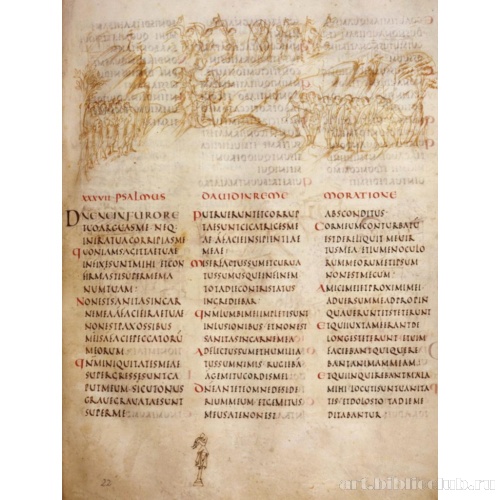 XXXVII· PSALMUS DAVID IN REME MORATIONE
DNENEINFURORE
TUOARGUASMENEQ·
INIRATUACORRIPIASME
QUONIAMSAGITTAETUAE
INFIXAESUNTMIHIETCON
FIRMASTISUPERMEMA
NUMTUAM·
NONESTSANITASINCAR
NEMEAAFACIEIRAETUAE
NONESTPAXOSSIBUS
MEISAFACIEPECCATORU
MEORUM
QNMINIQUITATESMEAE
SUPERGRESSESUNTCA
PUTMEUMSICUTONUS
GRAUEGRAUATAESUNT
SUPERME
PUTRUERUNTETCORRUP
TAESUNTCICATRICESME
AEAFACIEINSIPIENTIAE
MEAE
MISERFACTUSSUMETCURUA
TUSSUMUSQUEINFINEM
TOTADIECONTRISTATUS
INGREDIEBAR
QNMLUMBIMEIIMPLETISUNT
INLUSIONIBUSETNONEST
SANITASINCARNEMEA
ADFLICTUSSUMETHUMILIA
TUSSUMNIMISRUGIEBA
AGEMITUCORDISMEI
DNEANTETEOMNEDESIDE
RIUMMEUMETGEMITUS
MEUSATENONEST
ABSCONDITUS
CORMEUMCONTURBATU
ESTDERELIQUITMEUIR
TUSMEAETLUMENOCULO
RUMMEORUMETIPSUM
NONESTMECUM
AMICIMEIETPROXIMIMEI
ADUERSUMMEADPROPIN
QUAUERUNTETSTETERUNT
ETQUIIUXTAMEERANTDE
LONGESTETERUNTETUIM
FACIEBANTQUIQUERE
BANTANIMAMMEAM
ETQUIINQUIREBANTMALA
MIHILOCUTISUNTUANITA
TESETDOLOSTOTADIEME
DITABANTUR
22
art.biblioclub.ru